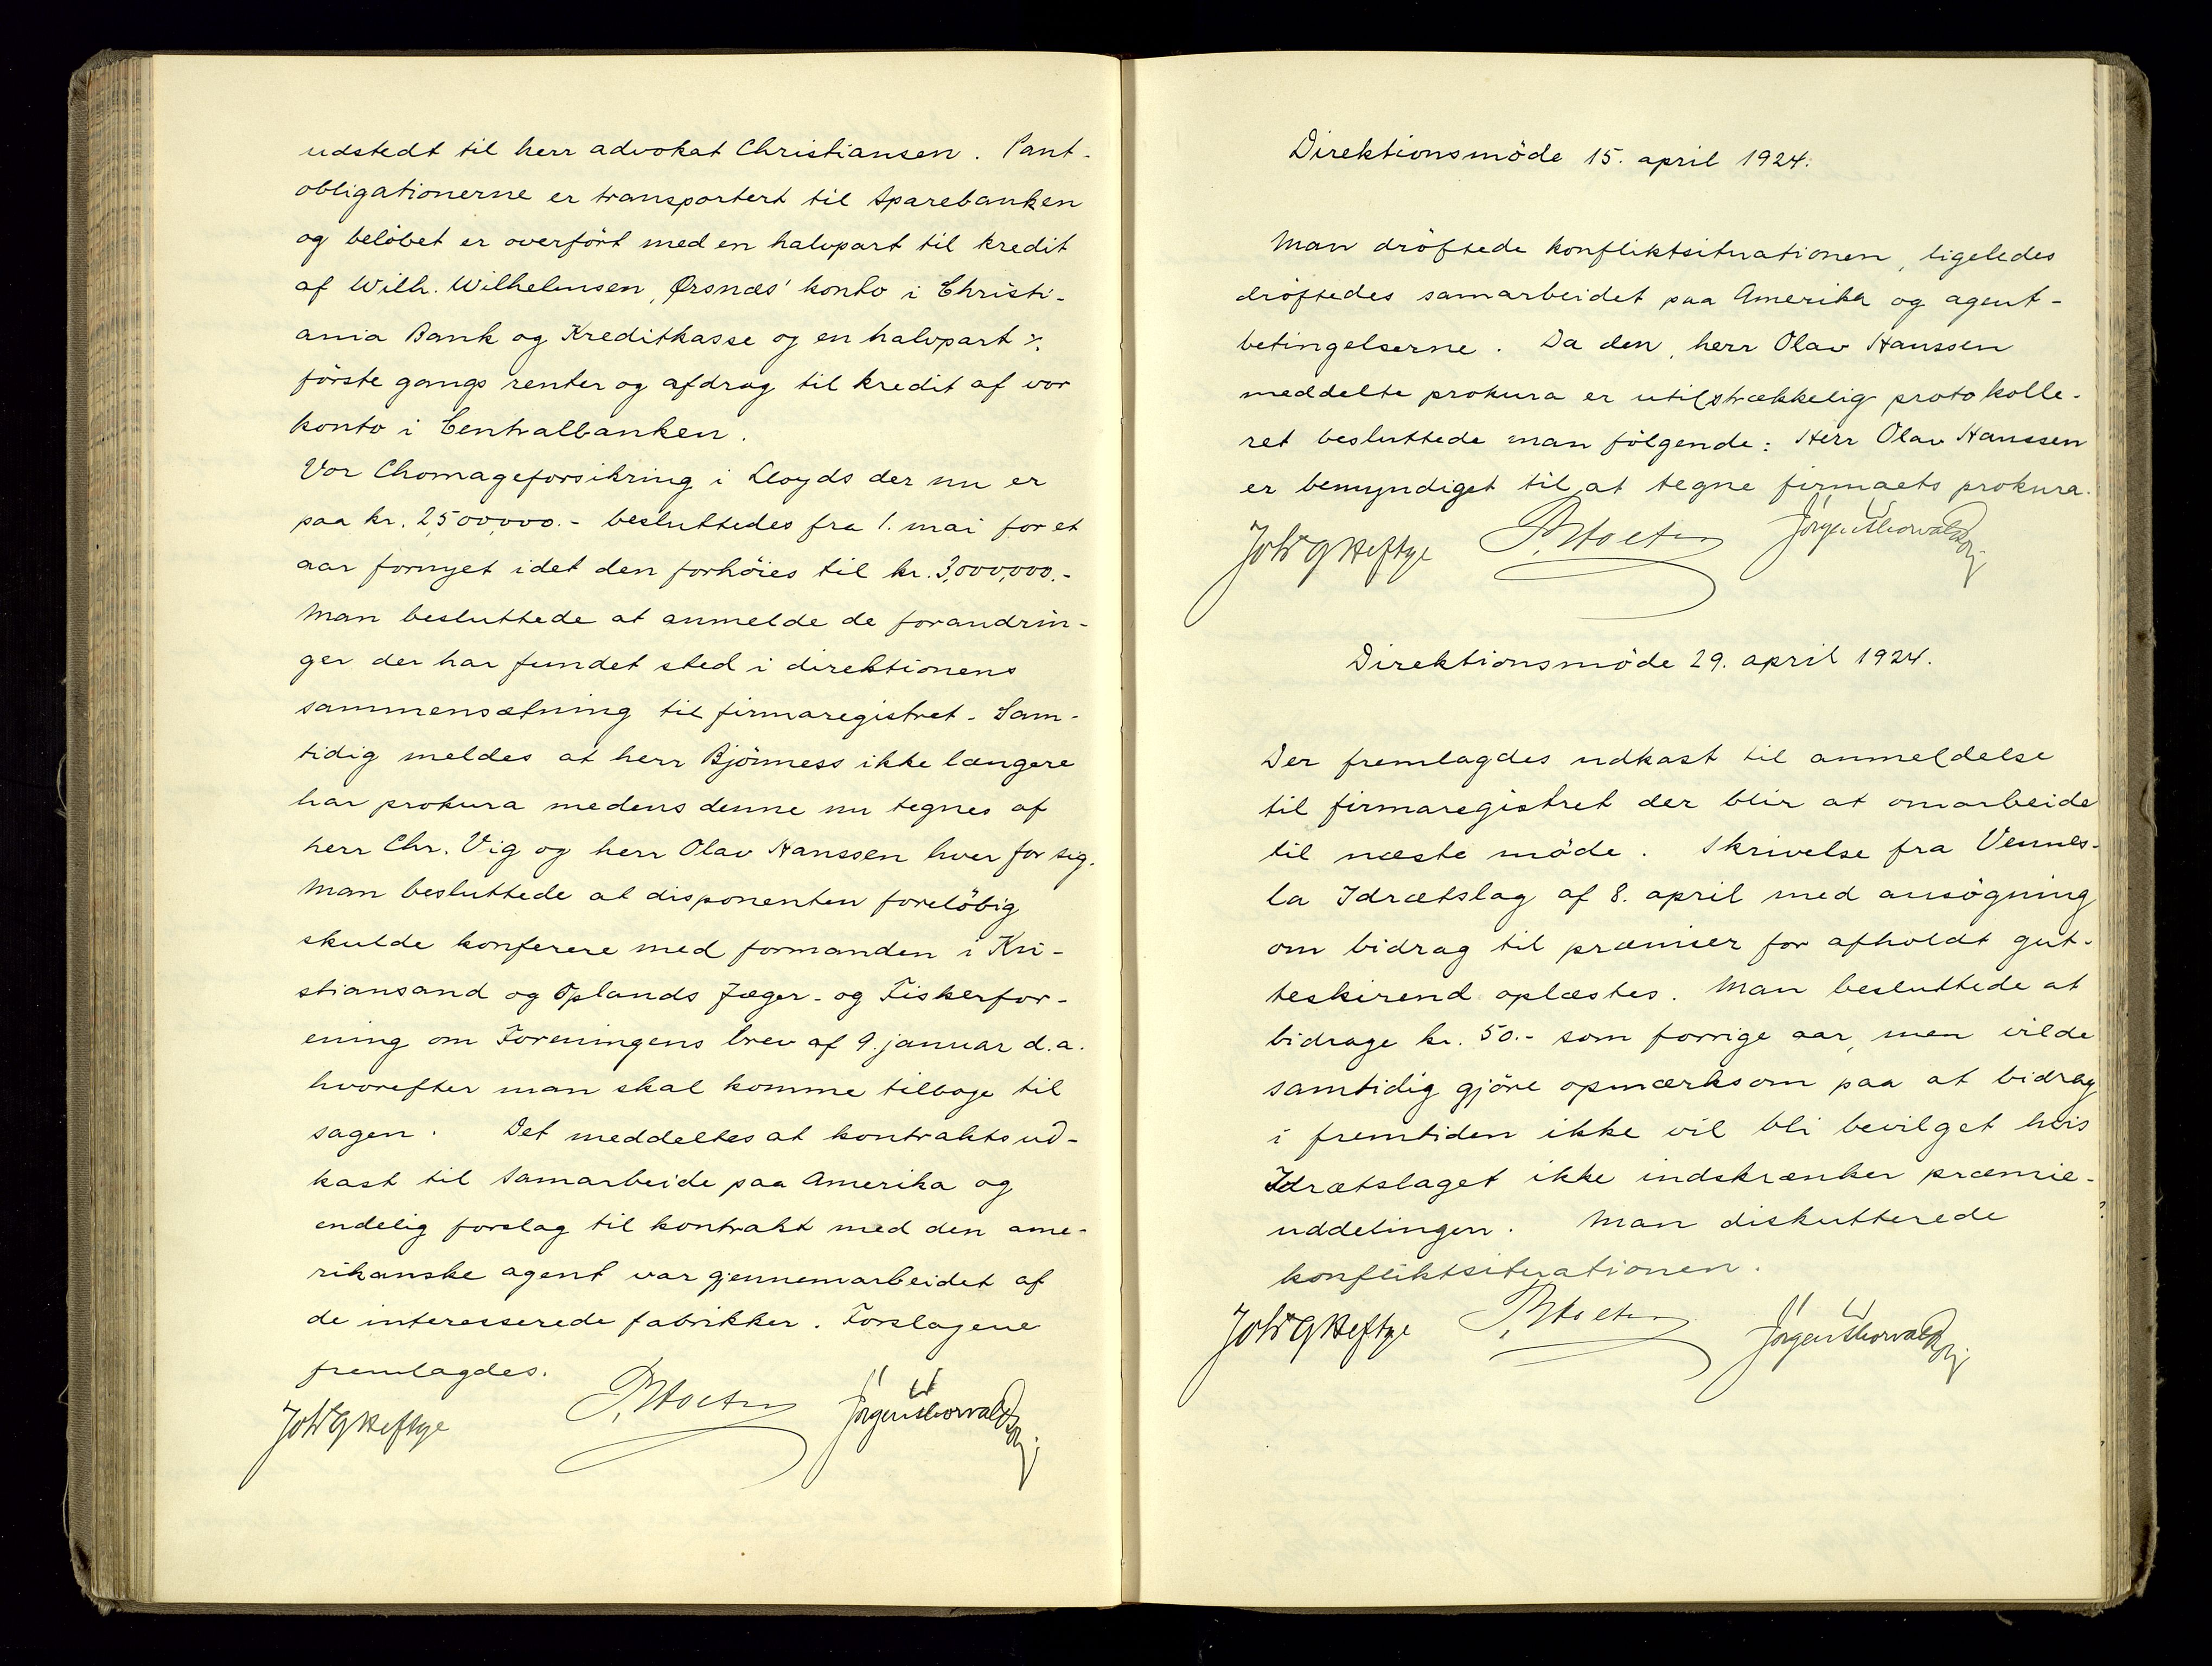 udstedt til herr advokat Christiansen. Pant-
obligationerne er transportert til Sparebanken
og beløbet er overført med en halvpart til kredit
af Wilh. Wilhelmsen, Ørsnæs' konto i Christi-
ania Bank og Kreditkasse og en halvpart ٪.
første gangs renter og afdrag til kredit af vor
konto i Centralbanken.
Vor Chomageforsikring i Lloyds der nu er
paa kr. 2,500,000.- besluttedes fra 1. mai for et
aar fornyet idet den forhöies til kr. 3,000,000.-
Man besluttede at anmelde de forandrin-
ger der har fundet sted i direktionens
sammensætning til firmaregistret. Sam-
tidig meldes at herr Bjönness ikke længere
har prokura medens denne nu tegnes af
herr Chr. Vig og herr Olav Hanssen hver for sig.
Man besluttede at disponenten forelöbig
skulde konferere med formanden i Kri-
stiansand og Oplands Jæger- og Fiskerfor-
ening om Foreningens brev af 9. januar d.a.
hvorefter man skal komme tilbage til
sagen. Det meddeltes at kontraktsud-
kast til Samarbeide paa Amerika og
endelig forslag til kontrakt med den ame-
rikanske agent var gjennemarbeidet af
de interesserede fabrikker. Forslagene
fremlagdes.
Joh G Heftye
Direktionsmöde 15. april 1924.
Man dröftede konfliktsituationen, ligeledes
dröftedes samarbeidet paa Amerika og agent-
betingelserne. Da den, herr Olav Hanssen
meddelte prokura er utilstrækkelig protokolle-
ret besluttede man fölgende: Herr Olav Hanssen
er bemyndiget til at tegne firmaets prokura.
Joh G Heftye
Direktionsmöde 29. april 1924.
Der fremlagdes udkast til anmeldelse
til firmaregistret der blir at omarbeide
til næste möde. Skrivelse fra Vennes-
la Idrætslag af 8. april med ansögning
om bidrag til præmier for afholdt gut-
teskirend oplæstes. Man besluttede at
bidrage kr. 50.- som forrige aar, men vilde
samtidig gjöre opmærksom paa at bidrag
i fremtiden ikke vil bli bevilget hvis
Idrætslaget ikke indskrænker præmie-
uddelingen. Man diskutterede
konfliktsituationen.
Joh G Heftye